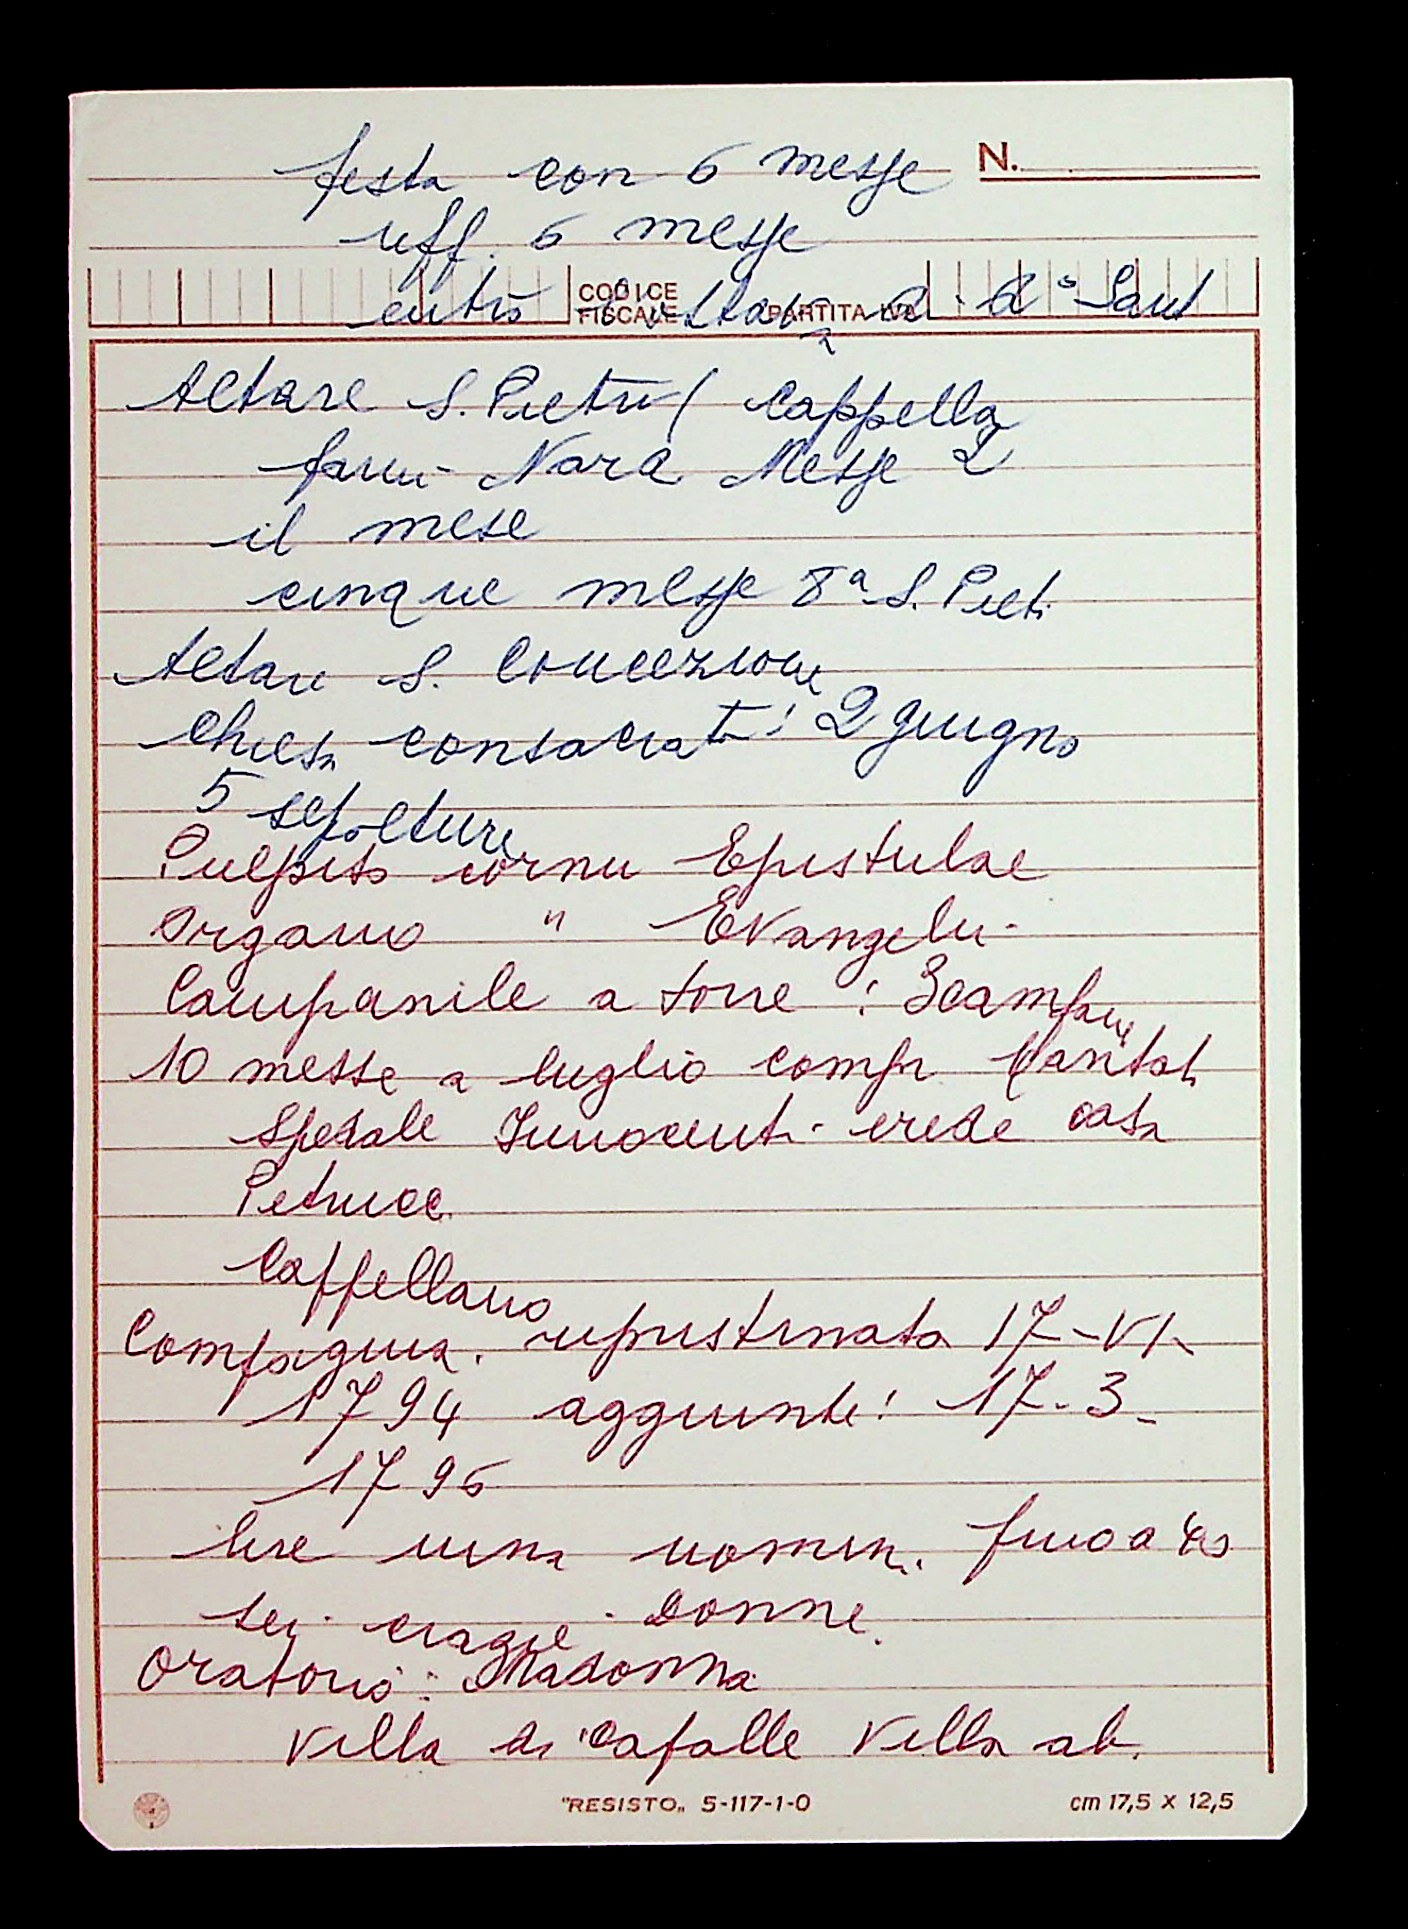 festa con 6 messe N.
uff. 6 messe
entro CODICE FISCALE PARTITA IVA
Altare S. Pietro ( Cappella
fami- Nara Messe 2
il mese
cinque messe 8ª S. Piet.
Altare S. Concezione
Chiesa consacrata: 2 giugno
5 sepolture
Pulpito cornu Epistulae
Organo " Evangeli-
Campanile a torre : 3 campane
10 messe a luglio comp. Carità
Spedale Innocenti- erede casa
Petrucc.
Cappellano
Compagnia. ripristinata 17-VI-
1794 aggiunte: 17-3-
1796
lire una uomini. fino a
sei crazie - Donne.
Oratorio: Madonna
Villa di Cafalle Villa ab.
"RESISTO„ 5-117-1-0 cm 17,5 x 12,5